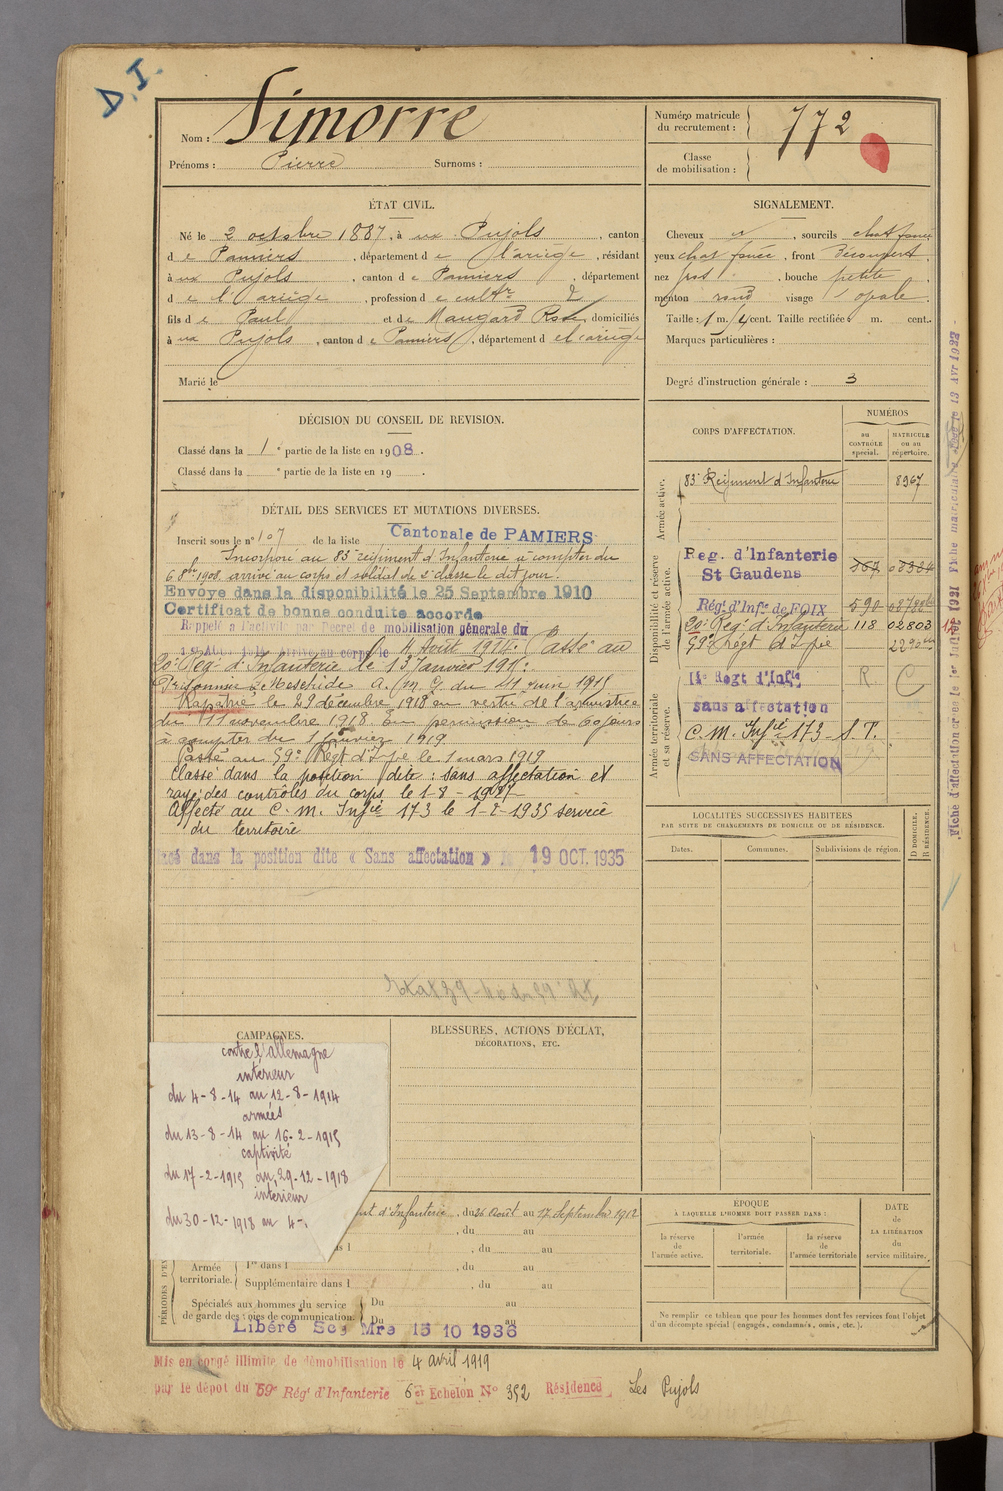 D.I.
Nom : Simorre
Prénoms : Pierre Surnoms :
Numéro matricule du recrutement : 772
Classe de mobilisation :
ÉTAT CIVIL.
Né le 2 octobre 1887, à ux Pujols, canton
d e Pamiers, département d e l'ariège, résidant
à ux Pujols, canton d e Pamiers, département
d e l'ariège, profession d e cultr
fils d e Paul et d e Maugard, domiciliés
à ux Pujols, canton d e Pamiers, département d e l'ariège
Marié le
SIGNALEMENT.
Cheveux, sourcils chat foncé
yeux chat foncé, front Découvert
nez, bouche petite
menton rond visage opale
Taille : 1 m. cent. Taille rectifiée : m. cent.
Marques particulières :
Degré d'instruction générale : 3
DÉCISION DU CONSEIL DE REVISION.
Classé dans la 1e partie de la liste en 1908.
Classé dans la e partie de la liste en 19 .
DÉTAIL DES SERVICES ET MUTATIONS DIVERSES.
Inscrit sous le n° 107 de la liste Cantonale de PAMIERS
Incorporé au 83e régiment d'Infanterie à compter du
6 8bre 1908, arrivé au corps et soldat de 2e classe le dit jour.
Envoyé dans la disponibilité le 25 Septembre 1910
Certificat de bonne conduite accordé
Rappelé à l'activité par Décret de mobilisation générale du
1er Août 1914 arrivé au corps le 4 Août 1914. Passé au
20e Reg. d'Infanterie le 13 Janvier 191
Prisonnier à Meschede A. M. G. du 24 juin 1915
Rapatrié le 29 décembre 1918 en vertu de l'armistice
du 11 novembre 1918 En permission de 60 jours
à compter du 1 janvier 1919
Passé au 59e Régt d'Ifie le 1 mars 1919
Classé dans la position dite : sans affectation et
rayé des contrôles du corps le 1-8-1927
Affecté au C. M. Infie 173 le 1-2-1935 service
du territoire
dans la position dite « Sans affectation » 19 OCT. 1935
CORPS D'AFFECTATION.
NUMÉROS
au CONTRÔLE spécial.
MATRICULE ou au répertoire.
Armée active.
83e Régiment d'Infanterie 8967
Disponibilité et réserve de l'armée active.
Reg. d'Infanterie
St Gaudens
Régt d'Infie de FOIX 590
20e Reg. d'Infanterie 118 02803
59e Régt d'Ifie
Armée territoriale et sa réserve.
Regt d'Infie R C
sans affectation
C. M. Infie 173 - S. T.
SANS AFFECTATION
LOCALITÉS SUCCESSIVES HABITÉES
PAR SUITE DE CHANGEMENTS DE DOMICILE OU DE RÉSIDENCE.
Dates. Communes. Subdivisions de région. D DOMICILE. R RÉSIDENCE.
CAMPAGNES.
contre l'allemagne
intérieur
du 4-8-14 au 12-8-1914
armées
du 13-8-14 au 16-2-1915
captivité
du 17-2-1915 au 29-12-1918
intérieur
du 30-12-1918 au 4-
BLESSURES, ACTIONS D'ÉCLAT,
DÉCORATIONS, ETC.
d'Infanterie, du 26 Août au 17 Septembre 1912
, du au
, du au
Armée territoriale.
1re dans l , du au
Supplémentaire dans l , du au
Spéciales aux hommes du service de garde des voies de communication. Du au
Du au
Libéré Ser Mre 15 10 1936
ÉPOQUE
À LAQUELLE L'HOMME DOIT PASSER DANS :
la réserve de l'armée active.
l'armée territoriale.
la réserve de l'armée territoriale
DATE de LA LIBÉRATION du service militaire.
Ne remplir ce tableau que pour les hommes dont les services font l'objet
d'un décompte spécial (engagés, condamnés, omis, etc.).
Mis en congé illimité de démobilisation le 4 avril 1919
par le dépôt du 59e Rég. d'Infanterie 6e Echelon N° 352 Résidence Les Pujols